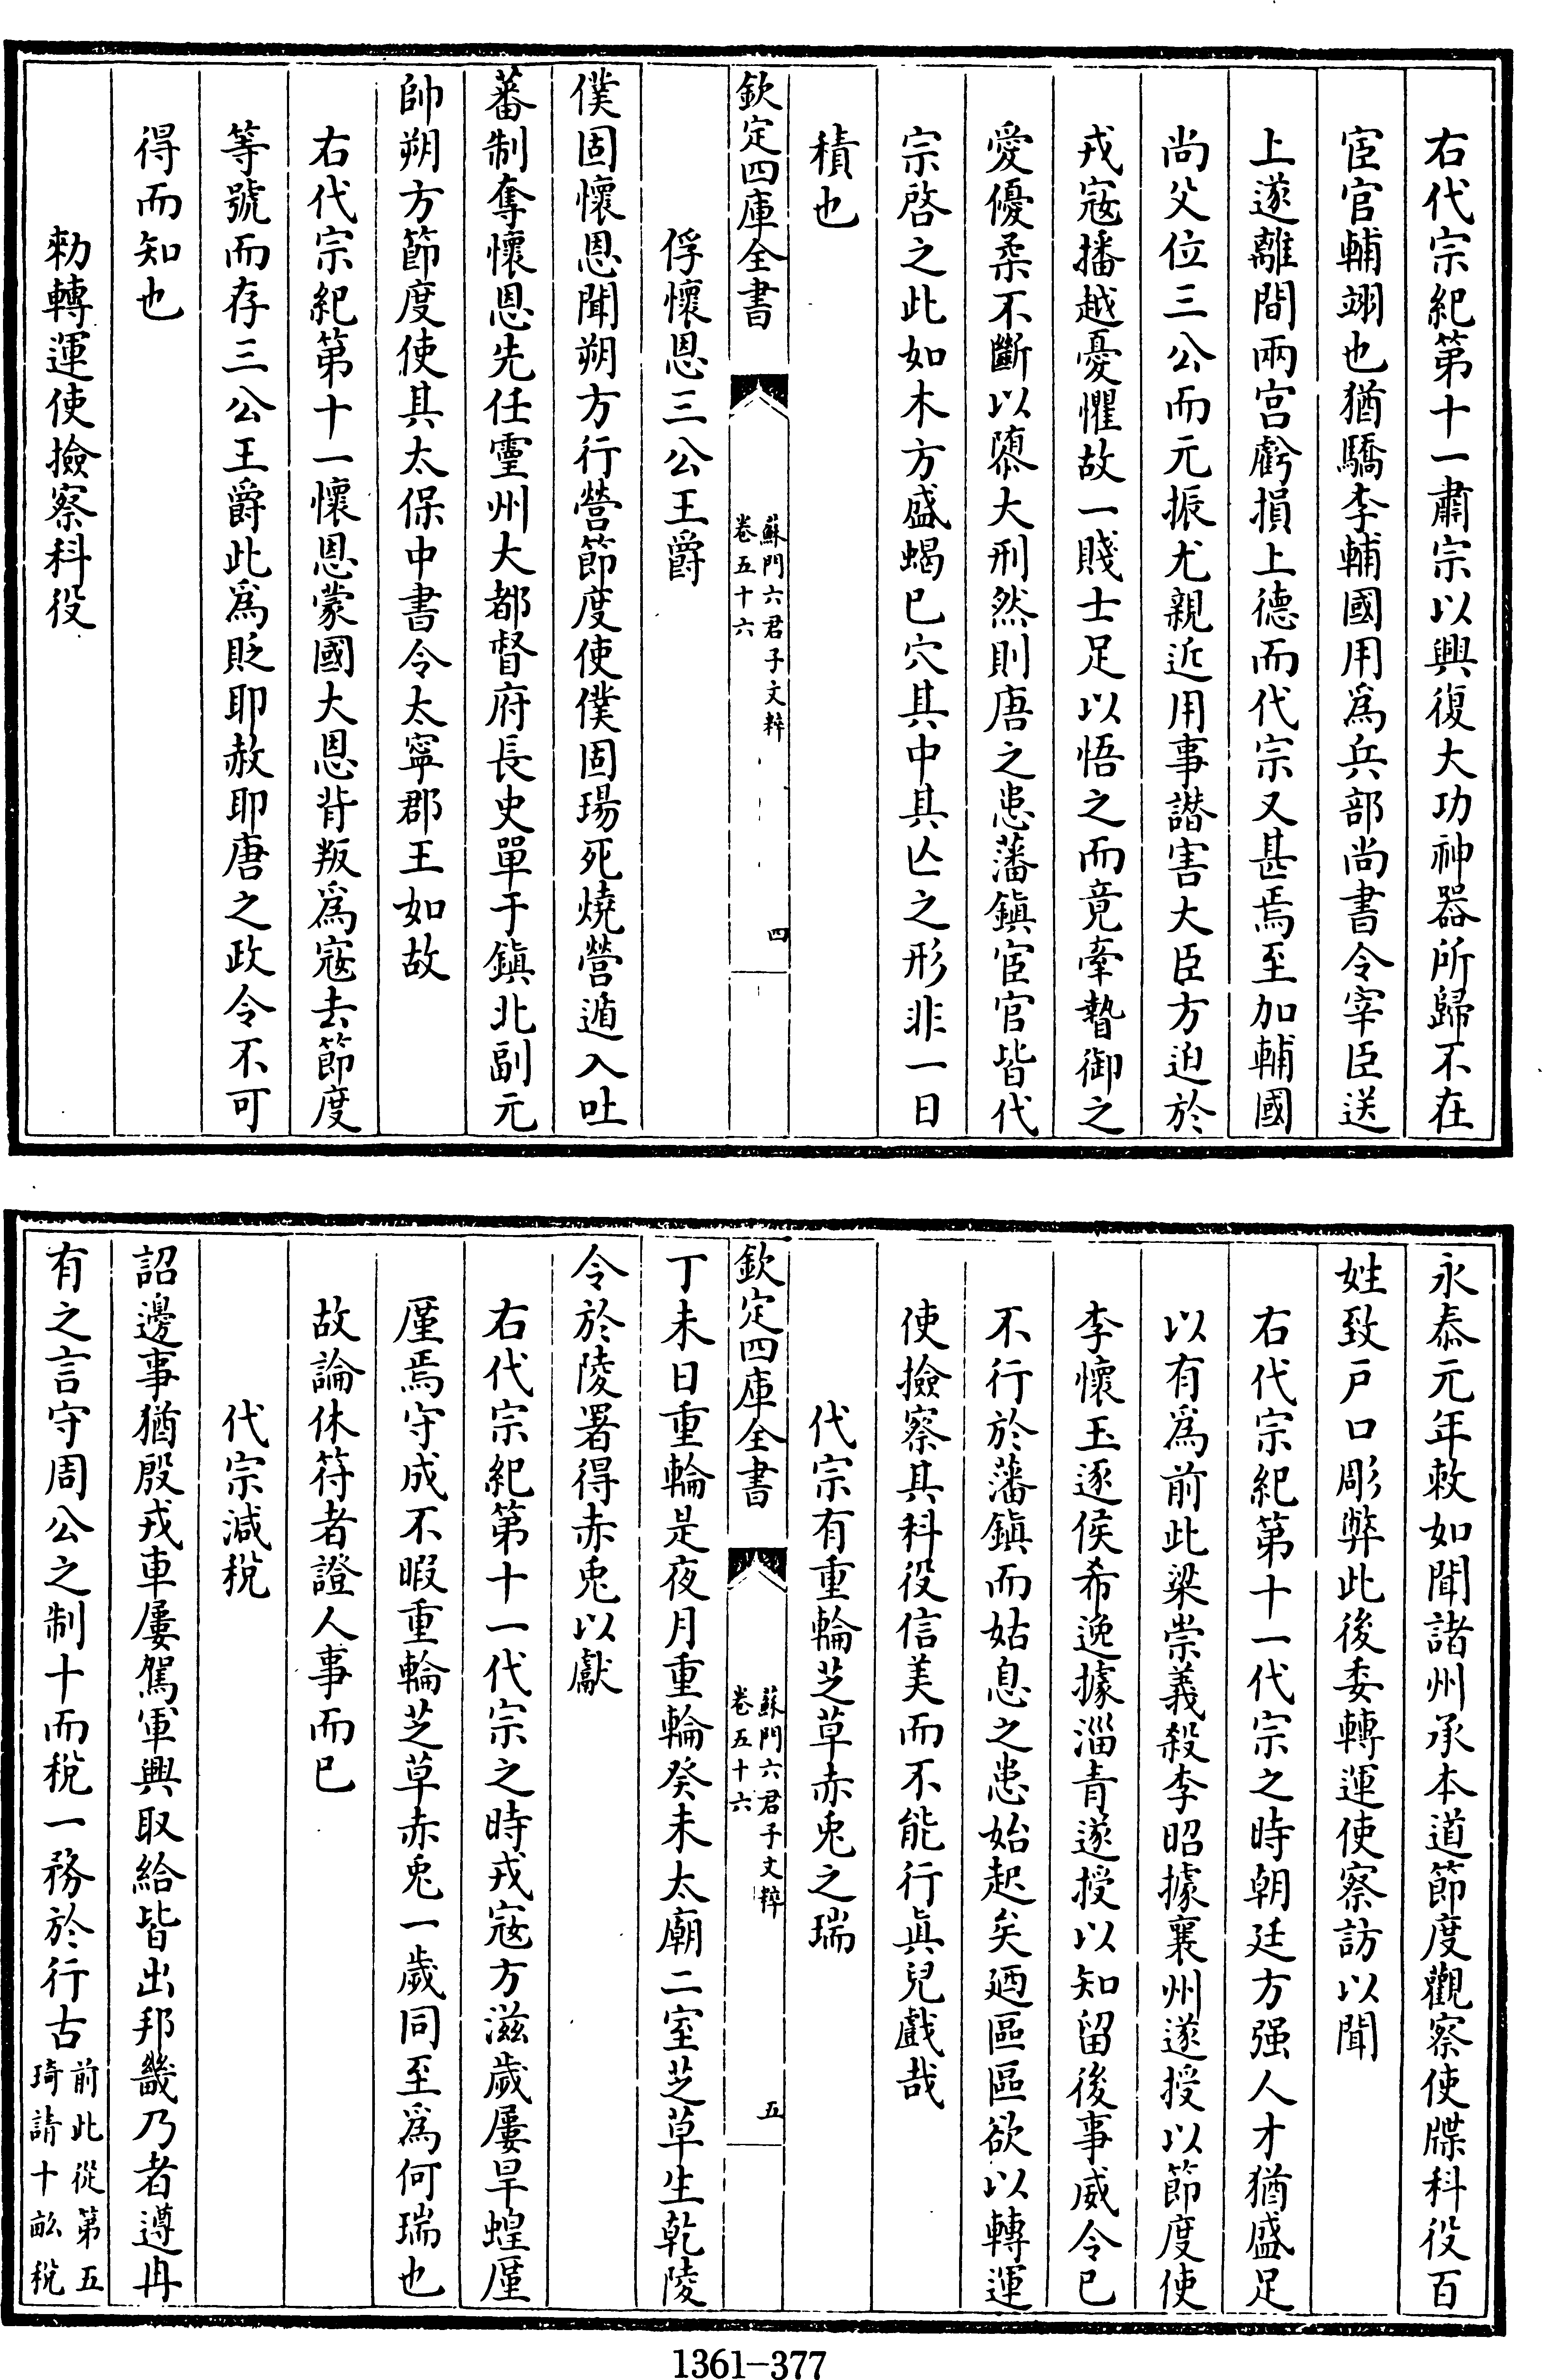 右代宗紀第十一肅宗以興復大功神器所歸不在
宦官輔翊也猶驕李輔國用爲兵部尚書令宰臣送
上遂離間兩宫虧損上德而代宗又甚焉至加輔國
尚父位三公而元振尤親近用事譖害大臣方迫於
戎寇播越憂懼故一賤士足以悟之而竟牽暬御之
愛優柔不斷以隳大刑然則唐之患藩鎮宦官皆代
宗啓之此如木方盛蝎已穴其中其亾之形非一日
積也
欽定四庫全書
蘇門六君子文粹
卷五十六
四
俘懷恩三公王爵
僕固懷恩聞朔方行營節度使僕固瑒死燒營遁入吐
蕃制奪懷恩先任靈州大都督府長史單于鎮北副元
帥朔方節度使其太保中書令太寧郡王如故
右代宗紀第十一懷恩蒙國大恩背叛爲寇去節度
等號而存三公王爵此爲貶耶赦耶唐之政令不可
得而知也
勑轉運使撿察科役
永泰元年敕如聞諸州承本道節度觀察使牒科役百
姓致户口彫弊此後委轉運使察訪以聞
右代宗紀第十一代宗之時朝廷方强人才猶盛足
以有爲前此梁崇義殺李昭據襄州遂授以節度使
李懷玉逐侯希逸據淄青遂授以知留後事威令已
不行於藩鎮而姑息之患始起矣廼區區欲以轉運
使撿察其科役信美而不能行眞兒戲哉
代宗有重輪芝草赤兎之瑞
欽定四庫全書
蘇門六君子文粹
卷五十六
五
丁未日重輪是夜月重輪癸未太廟二室芝草生乾陵
令於陵署得赤兎以獻
右代宗紀第十一代宗之時戎寇方滋歲屢旱蝗厪
厪焉守成不暇重輪芝草赤兎一歲同至爲何瑞也
故論休符者證人事而已
代宗減稅
詔邊事猶殷戎車屢駕軍興取給皆出邦畿乃者遵冉
有之言守周公之制十而稅一務於行古
前此從第五
琦請十畝稅
1361-377